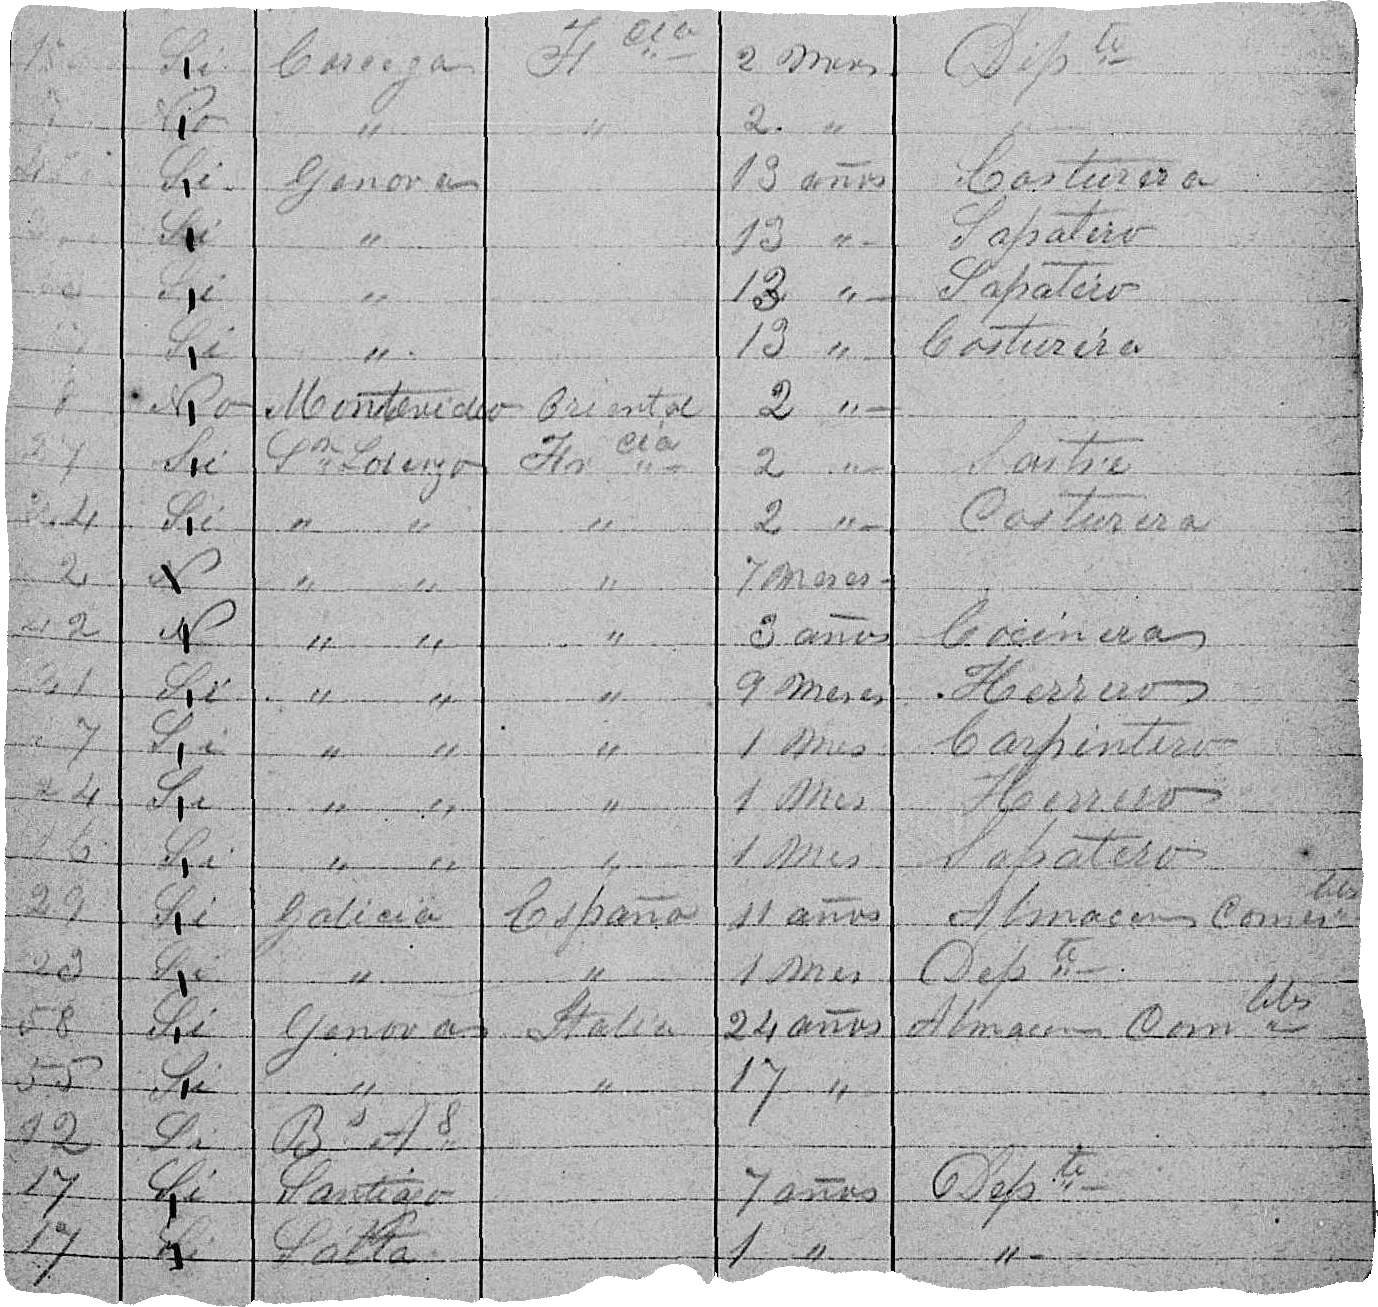 Si Corcega Fr cia 2 Mess Dep te
7 No " " 2. "
Si Genova 13 años Costurera
Si " 13 " Sapatero
Si " 13 " Sapatero
Si " 13 " Costurera
8 No Montevideo Oriental 2 "
27 Si Sn Lorenzo Fr cia 2 " Sastre
24 Si " " " 2 " Costurera
2 N " " " 7 Meses
42 N " " " 3 años Cocinera
31 Si " " " 9 Meses Herrero
7 Si " " " 1 Mes Carpintero
24 Si " " " 1 Mes Herrero
16 Si " " " 1 Mes Sapatero
29 Si Galicia España 11 años Almacen Comes bles
23 Si " " 1 Mes Dep te
58 Si Genova Italia 24 años Almacen Com bles
55 Si " " 17 "
12 Si Bs As
17 Si Santiago 7 años Dep te
17 Si Salta 1 " "